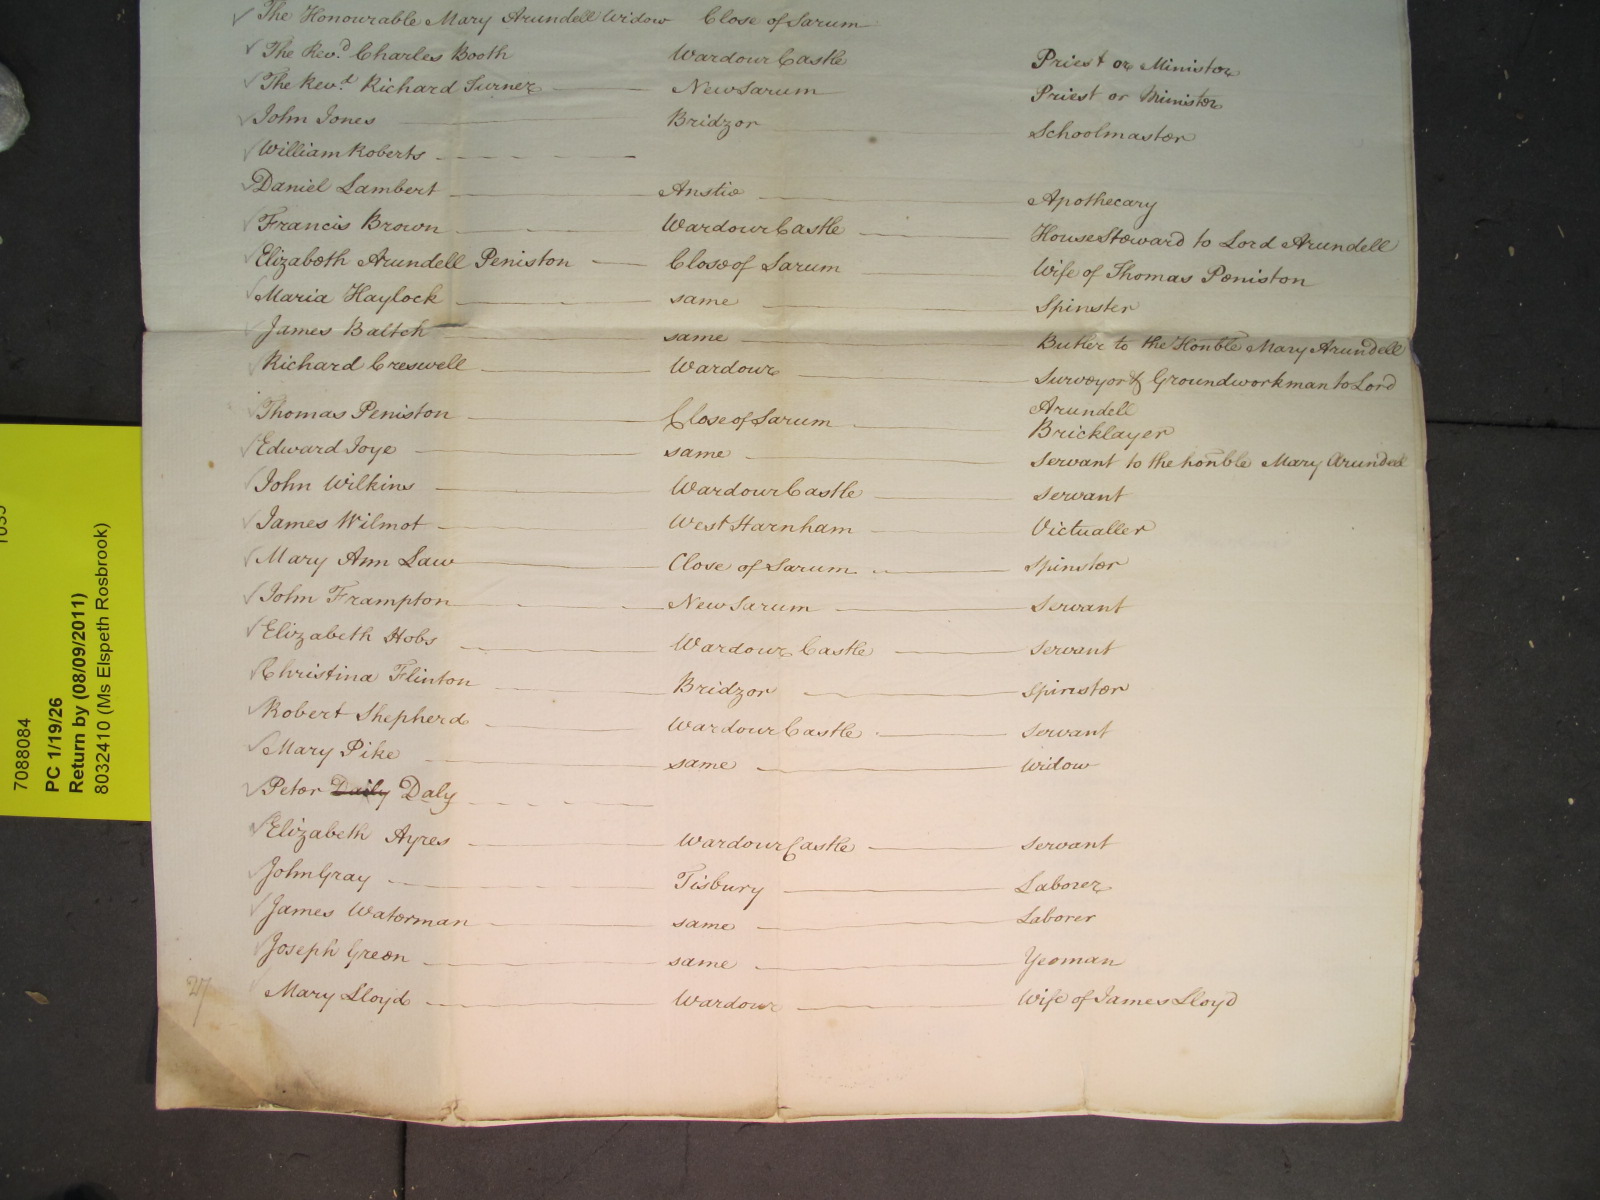 The Honourable Mary Arundell Widow Close of Sarum
The Revd. Charles Booth Wardour Castle Priest or Minister
The Revd. Richard Turner New Sarum Priest or Minister
John Jones Bridzor Schoolmaster
William Roberts
Daniel Lambert Anstie Apothecary
Francis Brown Wardour Castle House Steward to Lord Arundell
Elizabeth Arundell Peniston Close of Sarum Wife of Thomas Peniston
Maria Haylock same Spinster
James Baltch same Butler to the Honble Mary Arundell
Richard Creswell Wardour Surveyor & Groundworkman to Lord
Arundell
Thomas Peniston Close of Sarum Bricklayer
Edward Joye same Servant to the honble Mary Arundell
John Wilkins Wardour Castle Servant
James Wilmot West Harnham Victualler
Mary Ann Law Close of Sarum Spinster
John Frampton New Sarum Servant
Elizabeth Hobs Wardour Castle Servant
Christina Flinton Bridzor Spinster
Robert Shepherd Wardour Castle Servant
Mary Pike same Widow
Peter Daily Daly
Elizabeth Ayres Wardour Castle Servant
John Gray Tisbury Laborer
James Waterman same Laborer
Joseph Green same Yeoman
Mary Lloyd Wardour Wife of James Lloyd
27
7088084
PC 1/19/26
Return by (08/09/2011)
8032410 (Ms Elspeth Rosbrook)